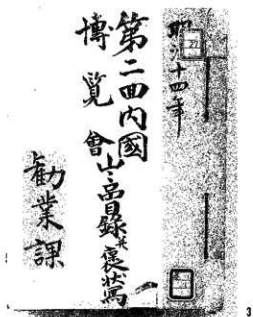 明治十四年
第二回内國
博覧會出品目録并褒状寫
勧業課
3